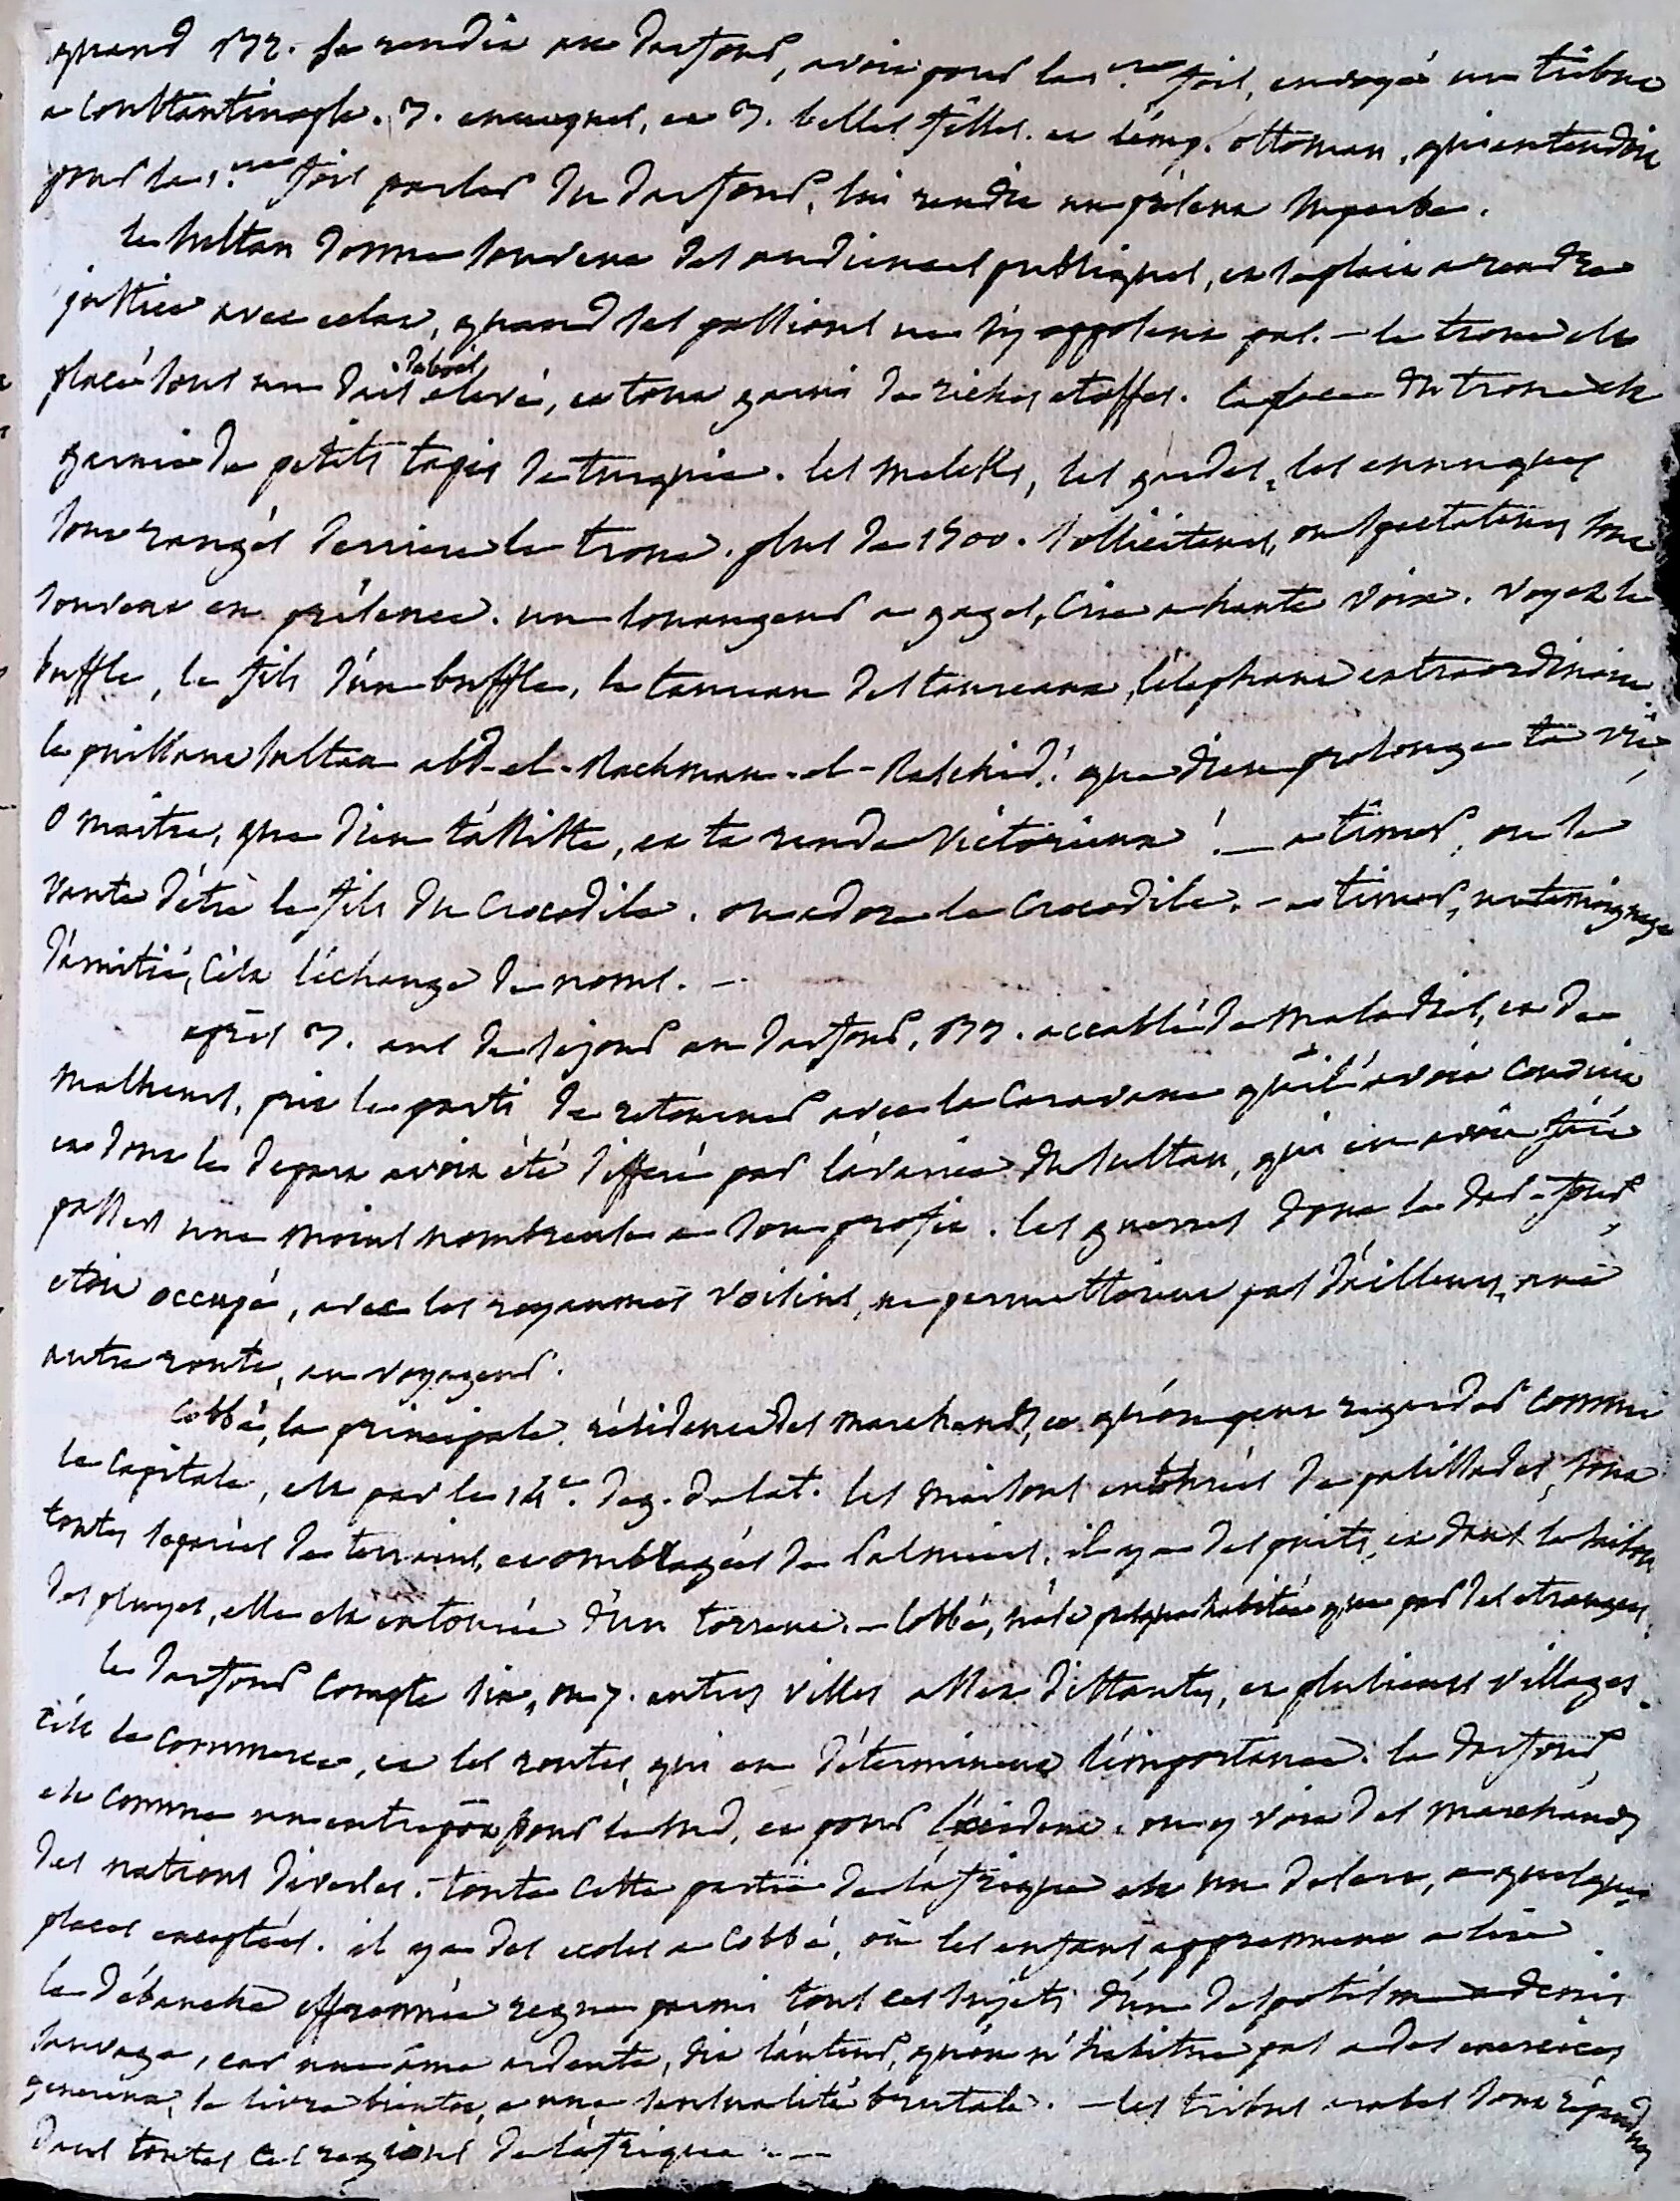 quand Mr. se rendit au Darfour, avoit pour la 1.ere fois, envoyé un tribut
a Constantinople. 3. eunuques, et 3. belles filles. et l'emp. ottoman, qui entendoit
pour la 1.ere fois parler du Darfour, lui rendit un présent superbe.
le sultan donne souvent des audiences publiques, et se plait a rendre
justice avec eclat, quand ses passions ne s'y opposent pas. - le trone est
placé sous un dais de bois elevé, et tout garni de riches etoffes. la place du trone est
garnie de petits tapis de turquie. les meleks, les gardes, les eunuques
sont rangés derriere le trone. plus de 1500. solliciteurs, ou spectateurs sont
souvent en présence. un louangeur a gages, crie a haute voix. voyez le
buffle, le fils d'un buffle, le taureau des taureaux, l'éléphant extraordinaire
le puissant sultan abd-el-Rachman-el-Raschid! que dieu prolonge ta vie,
O maitre, que dieu t'assiste, et te rende victorieux! - a timor, on se
vante d'être le fils du crocodile. on adore le crocodile. - a timor, un temoignage
d'amitié, c'est l'échange de noms. -
après 3. ans de sejour au Darfour, Mr. accablé de maladies, et de
malheurs, prit le parti de retourner avec la caravane qui l'avoit conduit
et dont le depart avoit été differé par l'avarice du sultan, qui en avoit fait
passer une moins nombreuse a son profit. les guerres dont le Dar-four,
etoit occupé, avec les royaumes voisins, ne permettoient pas d'ailleurs, une
autre route, au voyageur.
Cobbé, la principale résidence des marchands, et qu'on peut regarder comme
la capitale, est par le 14e. deg. de lat. les maisons entourées de palissades, sont
toutes separées de terrains, et ombragées de palmiers. il y a des puits, et dans la saison
des pluyes, elle est entourée d'un torrent. - Cobbé, n'est presque habitée que par des etrangers.
le Darfour compte six, ou 7. autres villes assez distantes, et plusieurs villages.
c'est le commerce, et les routes, qui en déterminent l'importance. le Darfour,
est comme un entrepôt pour le sud, et pour l'occident. on y voit des marchands
des nations diverses. toute cette partie de l'afrique est un desert, a quelques
places exceptées. il y a des ecoles a Cobbé, où les enfans apprennent a lire
la débauche effrennée regne parmi tous ces sujets d'un despotisme a demi
sauvage, car une âme ardente, dit l'auteur, qu'on n'habitue pas a des exercices
genereux, se livre bientot, a une sensualité brutale. - les tribus arabes sont répandues
dans toutes ces regions de l'afrique. -